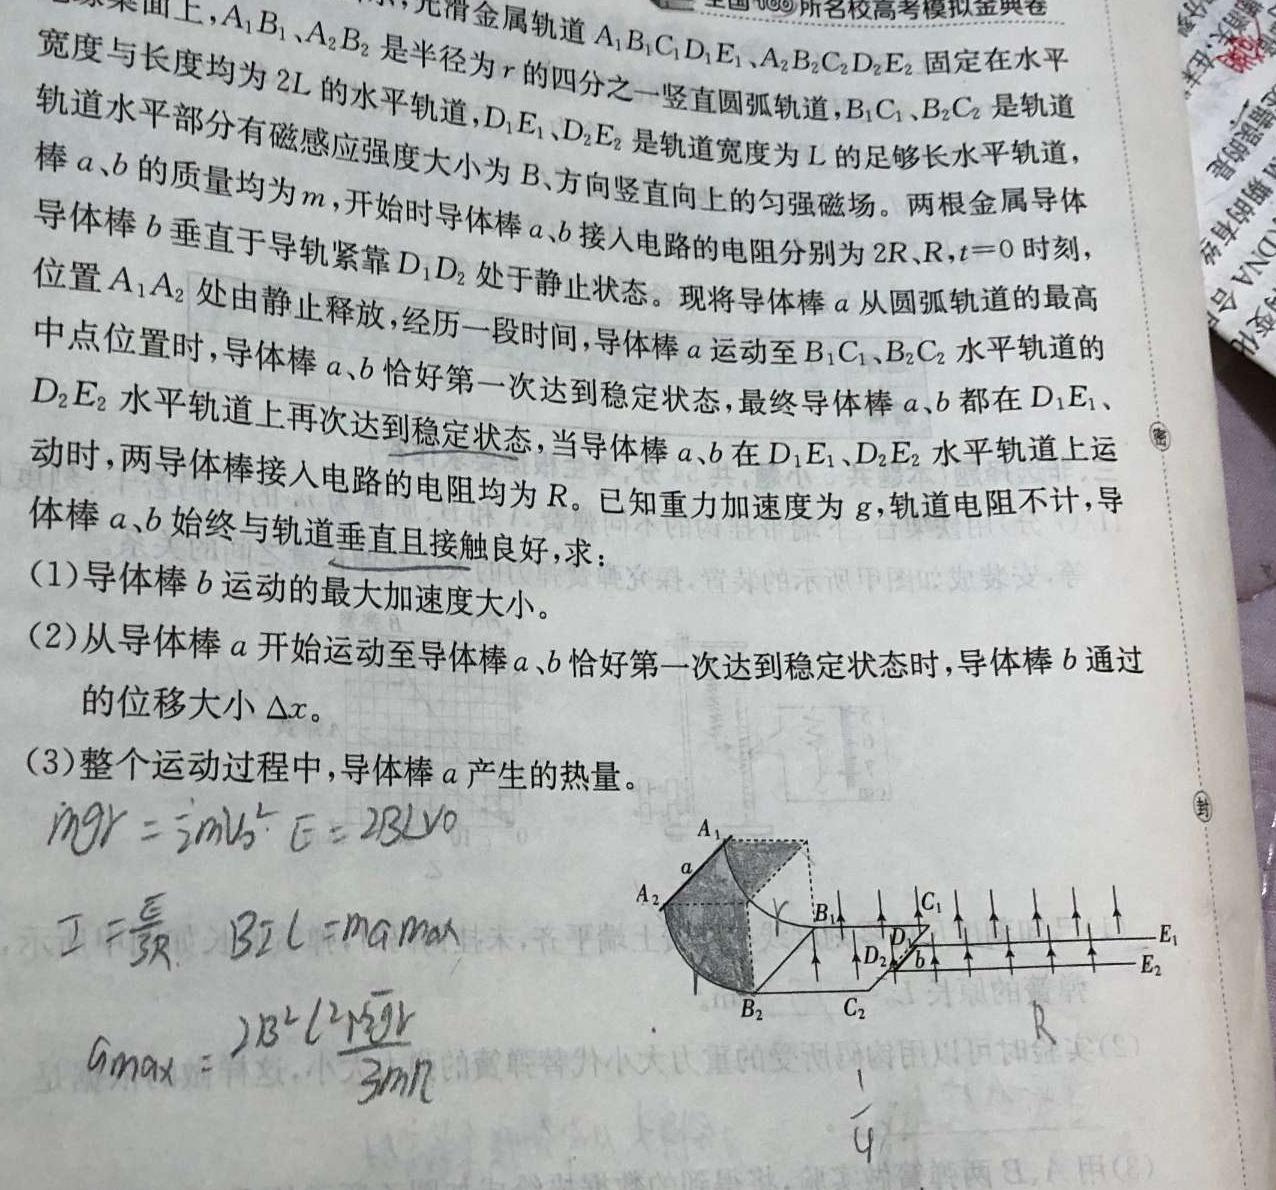 全国100所名校高考模拟金典卷
桌面上,A₁B₁、A₂B₂ 是半径为 r 的四分之一竖直圆弧轨道,B₁C₁、B₂C₂ 是轨道
光滑金属轨道 A₁B₁C₁D₁E₁、A₂B₂C₂D₂E₂ 固定在水平
宽度与长度均为 2L 的水平轨道,D₁E₁、D₂E₂ 是轨道宽度为 L 的足够长水平轨道,
轨道水平部分有磁感应强度大小为 B、方向竖直向上的匀强磁场。两根金属导体
棒 a、b 的质量均为 m,开始时导体棒 a、b 接入电路的电阻分别为 2R、R,t=0 时刻,
导体棒 b 垂直于导轨紧靠 D₁D₂ 处于静止状态。现将导体棒 a 从圆弧轨道的最高
位置 A₁A₂ 处由静止释放,经历一段时间,导体棒 a 运动至 B₁C₁、B₂C₂ 水平轨道的
中点位置时,导体棒 a、b 恰好第一次达到稳定状态,最终导体棒 a、b 都在 D₁E₁、
D₂E₂ 水平轨道上再次达到稳定状态,当导体棒 a、b 在 D₁E₁、D₂E₂ 水平轨道上运
动时,两导体棒接入电路的电阻均为 R。已知重力加速度为 g,轨道电阻不计,导
体棒 a、b 始终与轨道垂直且接触良好,求:
(1)导体棒 b 运动的最大加速度大小。
(2)从导体棒 a 开始运动至导体棒 a、b 恰好第一次达到稳定状态时,导体棒 b 通过
的位移大小 Δx。
(3)整个运动过程中,导体棒 a 产生的热量。
mgr = ½mv₀² E = 2BLv₀
I = E/3R BIL = mamax
amax = 2B²L²√2gr/3mR
A₁
a
A₂
r
B₁
C₁
D₁
D₂
b
E₁
E₂
B₂
C₂
R
1/4
密
封